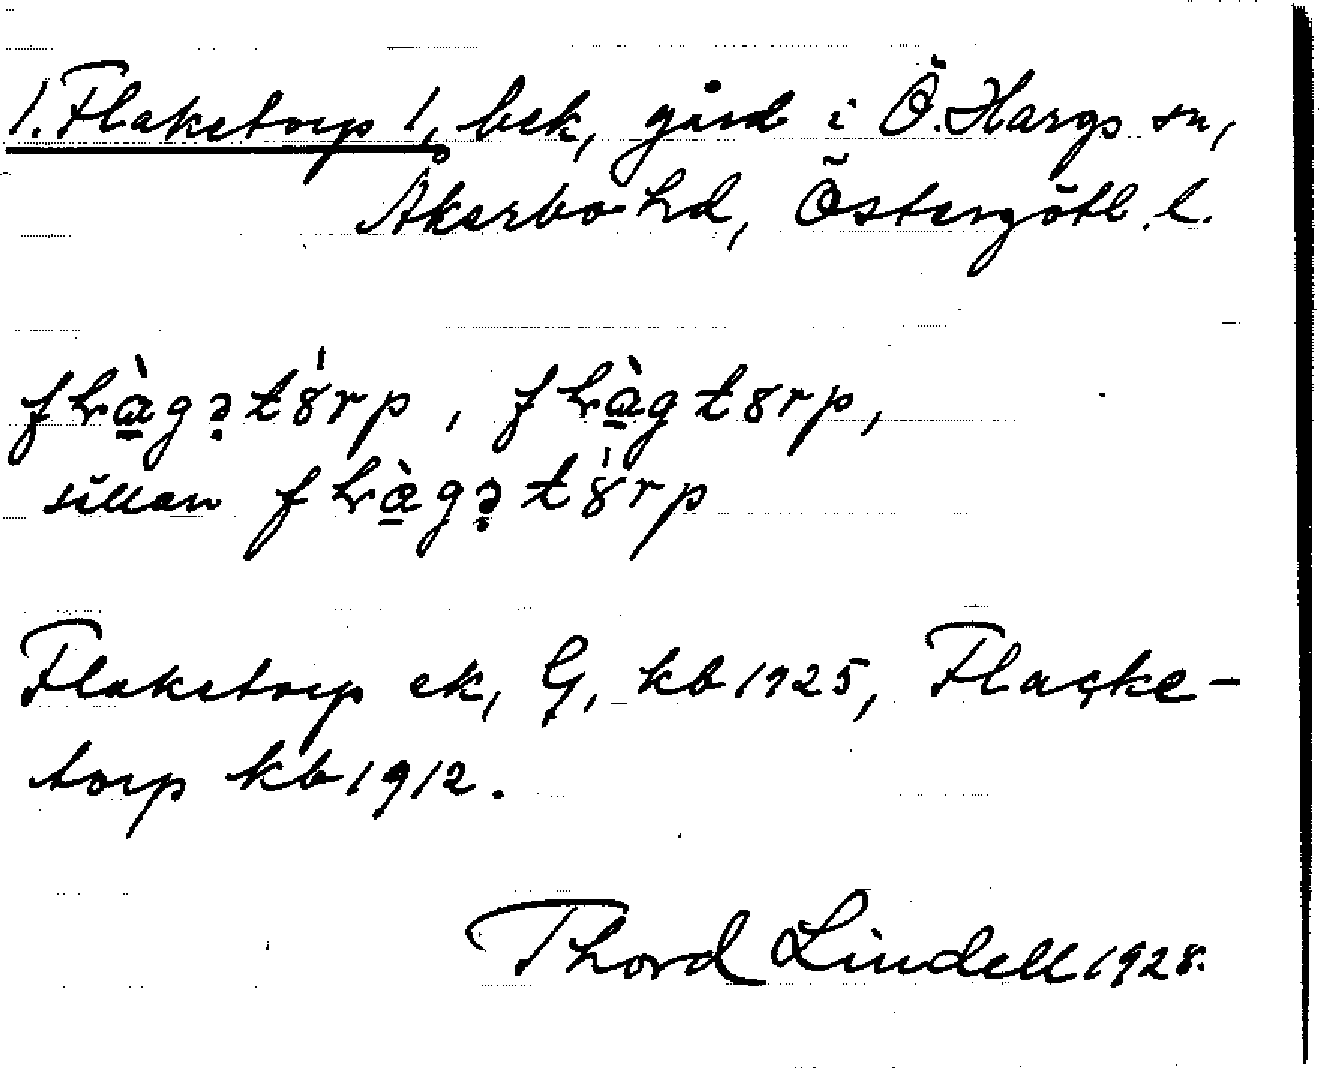 1. Flaketorp 1, bek, gård i Ö. Hargs sn,
Åkerbo hd, Östergötl. l.
fƚàgətȣ̍rp, fƚàgtȣrp,
sällan fƚàgətȣ̍rp
Flaketorp ek, G, kb 1925, Flacke-
torp kb 1912.
Thord Lindell 1928.